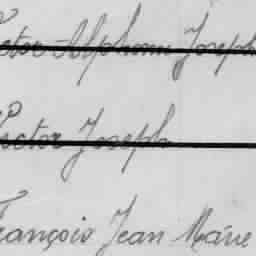 Victor Alphonse Joseph
Victor Joseph
François Jean Marie